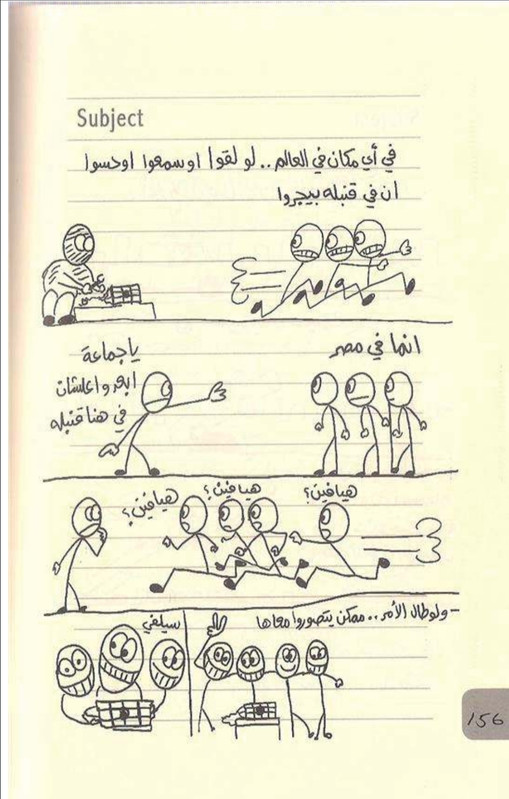 Subject
في أي مكان في العالم.. لو لقوا او سمعوا او حسوا
ان في قنبله بيجروا
انما في مصر
يا جماعة
ابعدوا علشان
في هنا قنبله
هيا فين؟
هيا فين؟
هيا فين؟
هيا فين؟
- ولو طال الأمر.. ممكن يتصوروا معاها
سيلفي
156